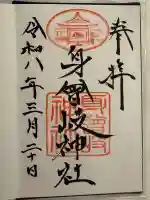 奉拝
身曾岐神社
令和八年三月二十日